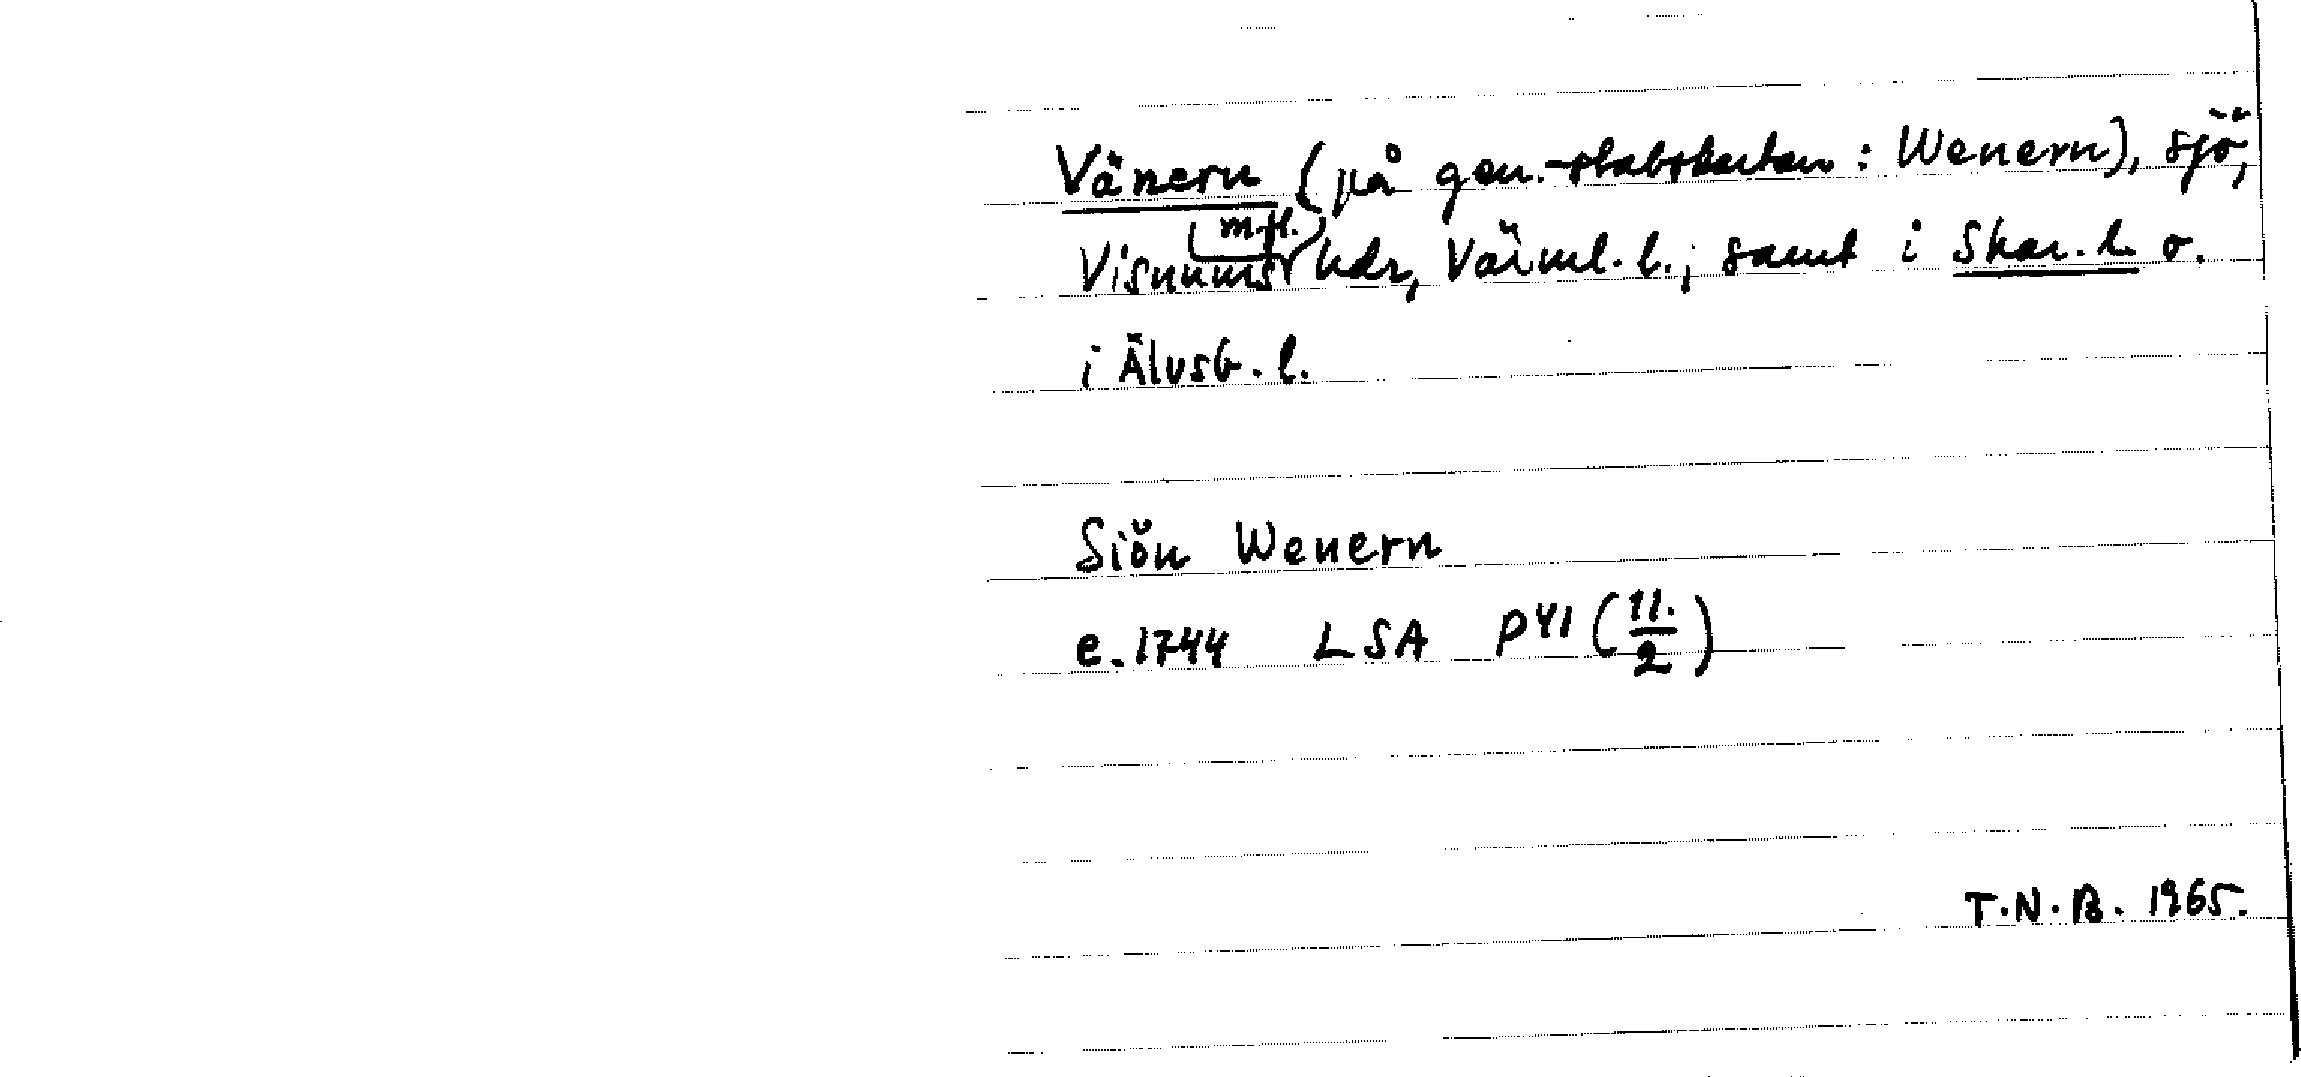 Vänern (på gen.-stabskartan: Wenern), sjö,
m.fl.
Visnums hdr, Värml. l.; samt i Skar. l. o.
i Älvsb. l.
Siön Wenern
e. 1744 LSA P41 (11./2)
T.N.B. 1965.